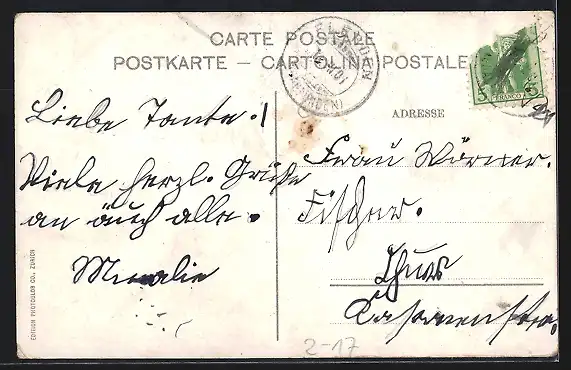 CARTE POSTALE
POSTKARTE — CARTOLINA POSTALE
5 FRANCO 5
ADRESSE
Liebe Tante!
Viele herzl. Grüße
an äuch alle.
Frau Wörner.
Fischer.
Chur
EDITION PHOTOGLOB CO., ZÜRICH
2-17